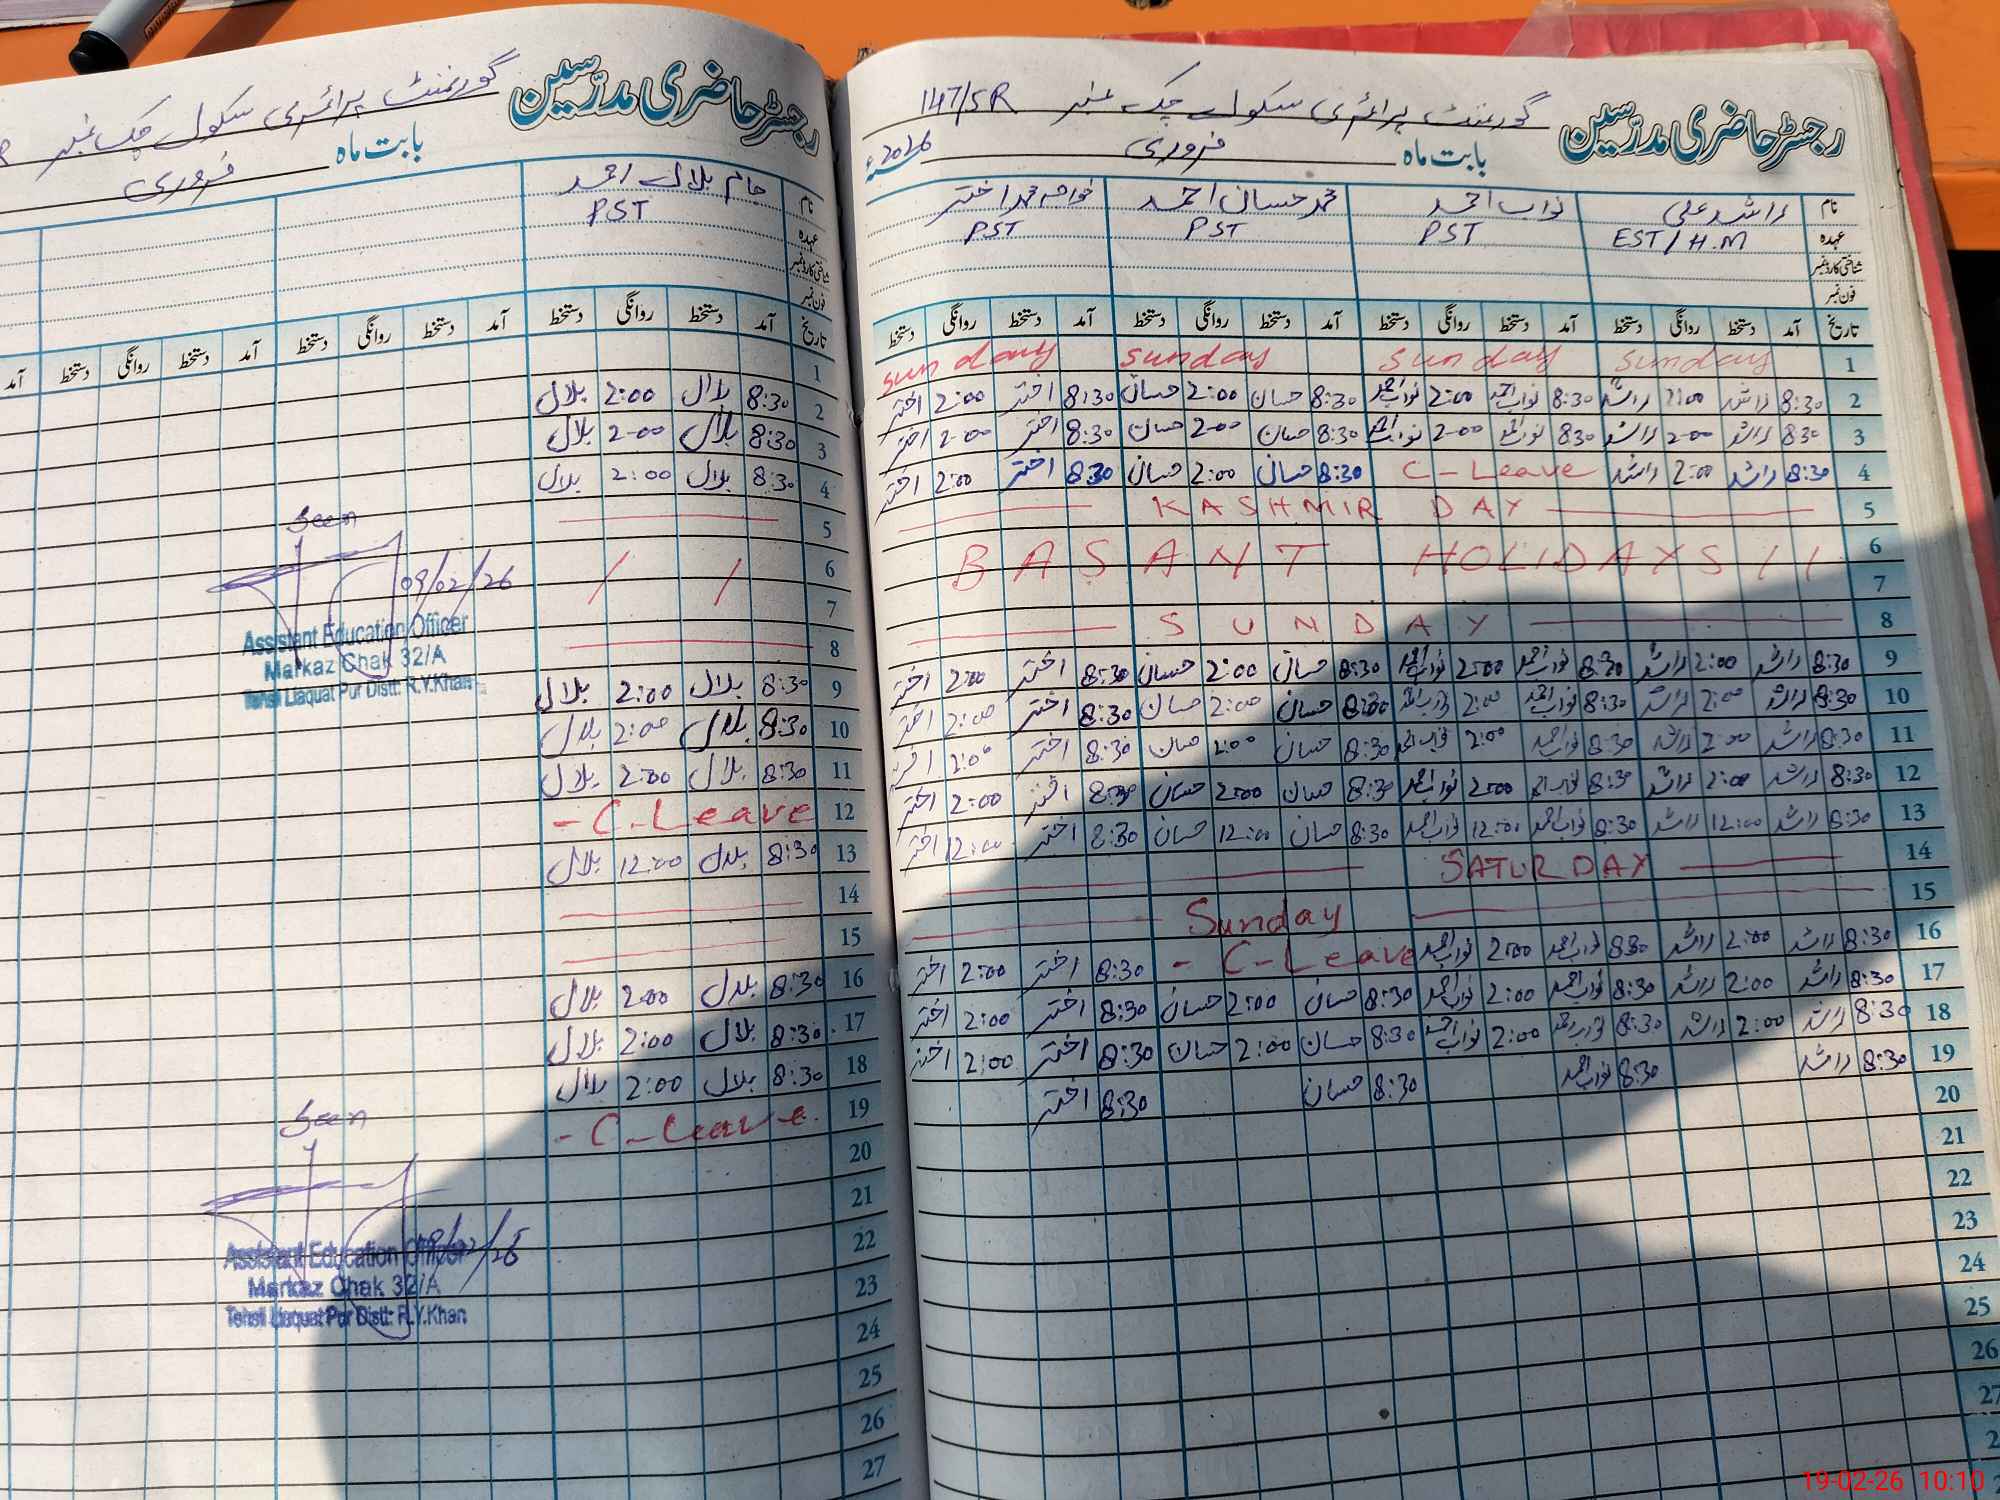 رجسٹر حاضری مدرّسین گورنمنٹ پرائمری سکول چک نمبر 147/5R
بابت ماہ فروری 2026ء
نام راشد علی نواب احمد محمد حسان احمد خواجہ محمد اختر
عہدہ EST/H.M PST PST PST
شناختی کارڈ نمبر
فون نمبر
تاریخ آمد دستخط روانگی دستخط آمد دستخط روانگی دستخط آمد دستخط روانگی دستخط آمد دستخط روانگی دستخط
1 sunday sunday sunday sunday
2 8:30 راشد 2:00 راشد 8:30 نواب احمد 2:00 نواب احمد 8:30 حسان 2:00 حسان 8:30 اختر 2:00 اختر
3 8:30 راشد 2:00 راشد 8:30 نواب احمد 2:00 نواب احمد 8:30 حسان 2:00 حسان 8:30 اختر 2:00 اختر
4 8:30 راشد 2:00 راشد C-Leave 8:30 حسان 2:00 حسان 8:30 اختر 2:00 اختر
5 KASHMIR DAY
6 BASANT HOLIDAYS 11
7
8 SUNDAY
9 8:30 راشد 2:00 راشد 8:30 نواب احمد 2:00 نواب احمد 8:30 حسان 2:00 حسان 8:30 اختر 2:00 اختر
10 8:30 راشد 2:00 راشد 8:30 نواب احمد 2:00 نواب احمد 8:30 حسان 2:00 حسان 8:30 اختر 2:00 اختر
11 8:30 راشد 2:00 راشد 8:30 نواب احمد 2:00 نواب احمد 8:30 حسان 2:00 حسان 8:30 اختر 2:00 اختر
12 8:30 راشد 2:00 راشد 8:30 نواب احمد 2:00 نواب احمد 8:30 حسان 2:00 حسان 8:30 اختر 2:00 اختر
13 8:30 راشد 12:00 راشد 8:30 نواب احمد 12:00 نواب احمد 8:30 حسان 12:00 حسان 8:30 اختر 12:00 اختر
14 SATURDAY
15 Sunday
16 8:30 راشد 2:00 راشد 8:30 نواب احمد 2:00 نواب احمد - C-Leave 8:30 اختر 2:00 اختر
17 8:30 راشد 2:00 راشد 8:30 نواب احمد 2:00 نواب احمد 8:30 حسان 2:00 حسان 8:30 اختر 2:00 اختر
18 8:30 راشد 2:00 راشد 8:30 نواب احمد 2:00 نواب احمد 8:30 حسان 2:00 حسان 8:30 اختر 2:00 اختر
19 8:30 راشد 8:30 نواب احمد 8:30 حسان 8:30 اختر
20
21
22
23
24
25
26
27
رجسٹر حاضری مدرّسین گورنمنٹ پرائمری سکول چک نمبر
بابت ماہ فروری
نام بلال احمد
عہدہ PST
شناختی کارڈ نمبر
فون نمبر
تاریخ آمد دستخط روانگی دستخط آمد دستخط روانگی دستخط آمد دستخط روانگی دستخط آمد
1
2 8:30 بلال 2:00 بلال
3 8:30 بلال 2-00 بلال
4 8:30 بلال 2:00 بلال
5
6
7
8
9 8:30 بلال 2:00 بلال
10 8:30 بلال 2:00 بلال
11 8:30 بلال 2:00 بلال
12 - C-Leave
13 8:30 بلال 12:00 بلال
14
15
16 8:30 بلال 2:00 بلال
17 8:30 بلال 2:00 بلال
18 8:30 بلال 2:00 بلال
19 - C-Leave
20
21
22
23
24
25
26
27
Seen
09/02/26
Assistant Education Officer
Markaz Chak 32/A
Tehsil Liaquat Pur Distt: R.Y.Khan
Seen
Assistant Education Officer
Markaz Chak 32/A
Tehsil Liaquat Pur Distt: R.Y.Khan
19-02-26 10:10